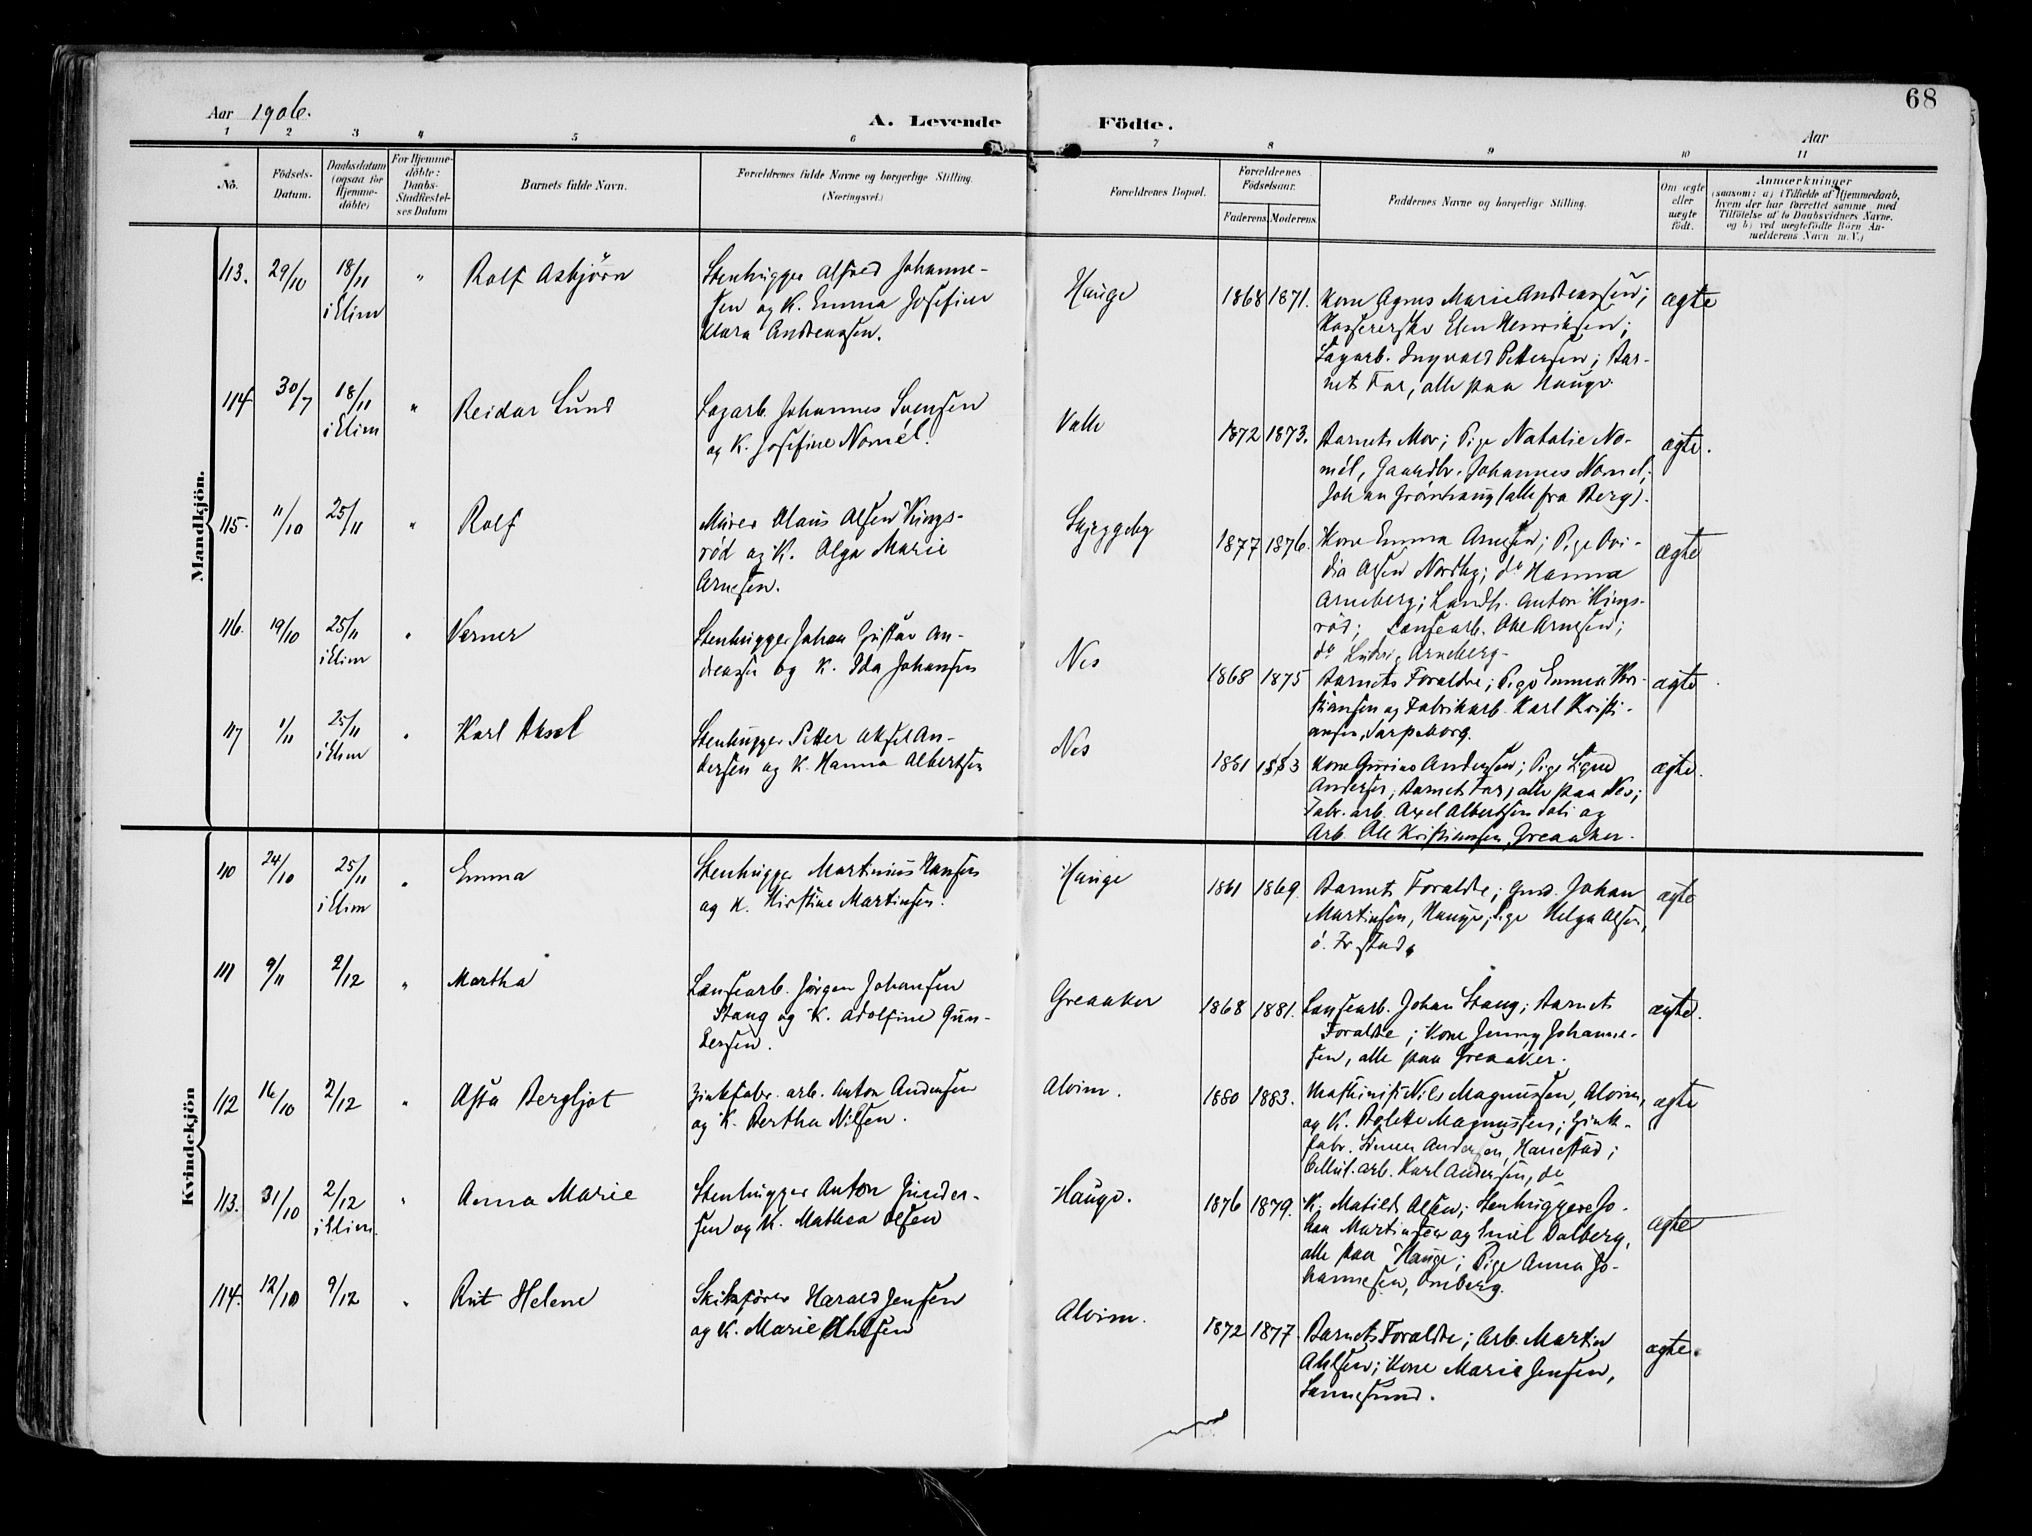 68
Aar 1906.
A. Levende Födte.
Aar
1 2 3 4 5 6 7 8 9 10 11
No.
Födsels-
Datum.
Daabsdatum
(ogsaa for
Hjemme-
döbte)
For Hjemme-
döbte:
Daabs-
Stadfæstel-
ses Datum
Barnets fulde Navn.
Forældrenes fulde Navne og borgerlige Stilling.
(Næringsvei.)
Forældrenes Bopæl.
Forældrenes
Födselsaar.
Faderens. Moderens.
Faddernes Navne og borgerlige Stilling.
Om ægte
eller
uægte
födt.
Anmærkninger
(saasom: a) i Tilfælde af Hjemmedaab,
hvem der har forrettet samme med
Tilföielse af to Daabsvidners Navne,
og b) ved uægtefödte Börn An-
melderens Navn m.V.)
Mandkjön.
113. 29/10 18/11 i Elim " Rolf Asbjörn
Stenhugger Alfred Johanne-
sen og K. Emma Josefine
Klara Andreassen.
Hauge 1868 1871.
Kone Agnes Marie Andreassen;
Kassererske Elen Henriksen;
Sagarb. Ingvald Pettersen; Bar-
nets Far, alle paa Hauge.
ægte
114. 30/7 18/11 i Elim " Reidar Lund
Sagarb. Johannes Svensen
og K. Josefine Nomél.
Valle 1872 1873.
Barnets Mor; Pige Natalie No-
mél, Gaardbr. Johannes Nomel,
Johan Grönhaug (alle fra Berg).
ægte.
115. 11/10 25/11 " Rolf
Murer Olaus Olsen Kings-
rød og K. Olga Marie
Arnesen.
Skjeggeby 1877 1876.
Kone Emma Arnesen; Pige Ovi-
dia Olsen Nordby; do Hanna
Arneberg; Landh. Anton Kings-
rød; Lænsearb. Ole Arnesen;
do Ludvig Arneberg-
ægte
116. 19/10 25/11 i Elim " Verner
Stenhugger Johan Gustav An-
dreassen og K. Ida Johansen
Nes 1868 1875
Barnets Foraldre; Pige Emma Kri-
stiansen og Fabrikarb. Karl Kristi-
ansen, Sarpsborg.
ægte
117 1/11 25/11 i Elim " Karl Aksel
Stenhugger Petter Aksel An-
dersen og K. Hanna Albertsen
Nes 1881 1883
Kone Gurine Andersen; Pige Signe
Andersen, Barnets Far, alle paa Nes;
Fabr. arb. Axel Albertsen Soli og
Arb. Ole Kristiansen, Greaaker.
ægte.
Kvindekjön
110 24/10 25/11 i Elim " Emma
Stenhugger Martinius Hansen
og K. Kirstine Martinsen.
Hauge 1861 1869.
Barnets Foraldre; Gmd. Johan
Martinsen, Hauge; Pige Helga Olsen,
ö. Fr.stad.
ægte
111 9/11 2/12 " Martha
Lænsearb. Jörgen Johansen
Stang og K. Adolfine Gun-
dersen.
Greaaker 1868 1881.
Lænsearb. Johan Stang; Barnets
Foraldre; Kone Jenny Johanne-
sen, alle paa Greaaker.
ægte.
112 16/10 2/12 " Asta Bergljot
Zinkfabr. arb. Anton Andersen
og K. Bertha Nilsen.
Alvim. 1880 1883.
Maskinist Nils Magnussen, Alvim,
og K. Bolette Magnussen; Zink-
fabr. Simen Andersen, Hanestad;
Cellul. arb. Karl Andersen, do
ægte
113. 31/10 2/12 i Elim. " Anna Marie
Stenhugger Anton Gunder-
sen og K. Mathea Olsen
Hauge. 1876 1879.
K. Matilde Olsen; Stenhuggere Jo-
han Martinsen og Emil Dalberg,
alle paa Hauge; Pige Anna Jo-
hannesen, Omberg.
ægte
114. 12/10 9/12 " Rut Helene
Skibsfører Harald Jensen
og K. Marie Ahlsen
Alvim. 1872 1877.
Barnets Foraldre; Arb. Martin
Ahlsen; Kone Marie Jensen,
Sannesund.
ægte.